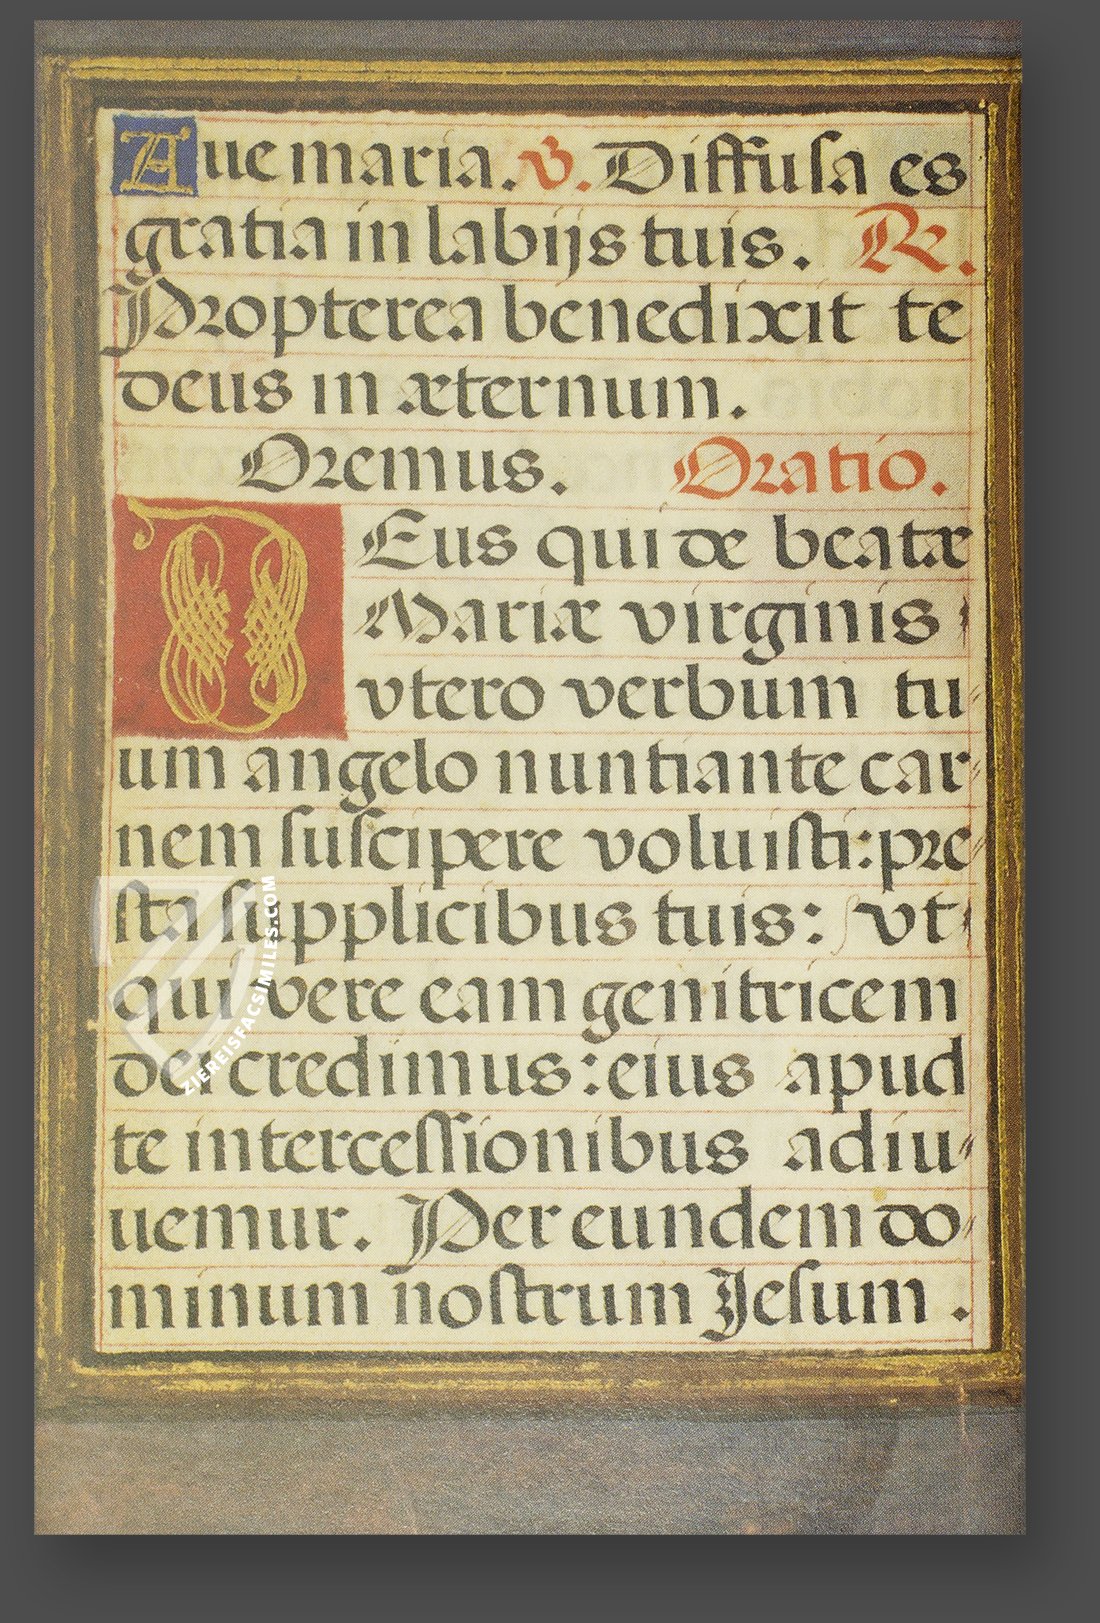 Aue maria. V. Diffusa es
gratia in labijs tuis. R.
Propterea benedixit te
deus in æternum.
Oremus. Oratio.
DEus qui de beatæ
Mariæ virginis
vtero verbum tu-
um angelo nuntiante car-
nem suscipere voluisti: pre-
sta supplicibus tuis: vt
qui vere eam genitricem
dei credimus: eius apud
te intercessionibus adiu-
uemur. Per eundem do-
minum nostrum Jesum.
ZIEREISFACSIMILES.COM